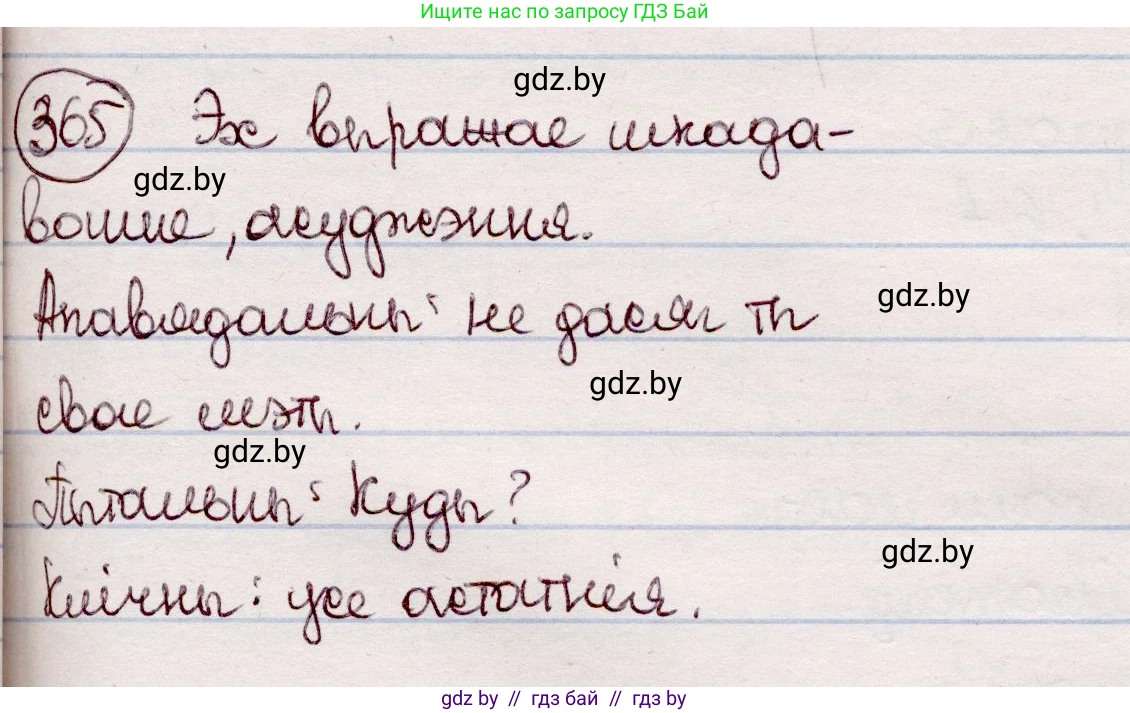 Ищите нас по запросу ГДЗ Бай
gdz.by
365 Эх выражае шкада-
gdz.by
ванне, асуджэння.
gdz.by
Апавядальны: не дасяг ты
gdz.by
свае мэты.
gdz.by
Пытальны: Куды?
gdz.by
Клічны: усе астатнія.
gdz.by // гдз бай // гдз by